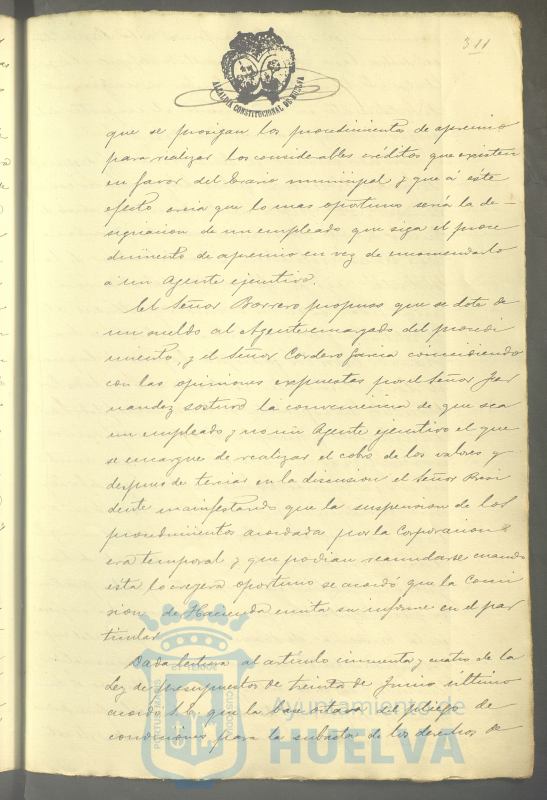 311
ALCALDIA CONSTITUCIONAL DE HUELVA
que se prosigan los procedimientos de apremio
para realizar los considerables créditos que existen
en favor del Erario municipal y que á este
efecto creia que lo mas oportuno seria la de-
signacion de un empleado que siga el proce
dimiento de apremio en vez de encomendarlo
á un Agente ejecutivo.
El Señor Borrero propuso que se dote de
un sueldo al Agente encargado del procedi
miento, y el Señor Cordero Garcia coincidiendo
con las opiniones expuestas por el Señor Fer
nandez sostuvo la conveniencia de que sea
un empleado y no un Agente ejecutivo el que
se encargue de realizar el cobro de los valores y
despues de terciar en la discusion el Señor Presi
dente manifestando que la suspension de los
procedimientos acordada por la Corporacion
era temporal y que podian reanudarse cuando
esta lo creyera oportuno se acordó que la Comi
sion de Hacienda emita su informe en el par
ticular.
Dada lectura al artículo cincuenta y cuatro de la
Ley de presupuestos de treinta de Junio último
acordó S.E. que la base octava del pliego de
condiciones para la subasta de los derechos de
PORTUS MARIS
ET TERRAE
CUSTODIA
Ayuntamiento de
HUELVA